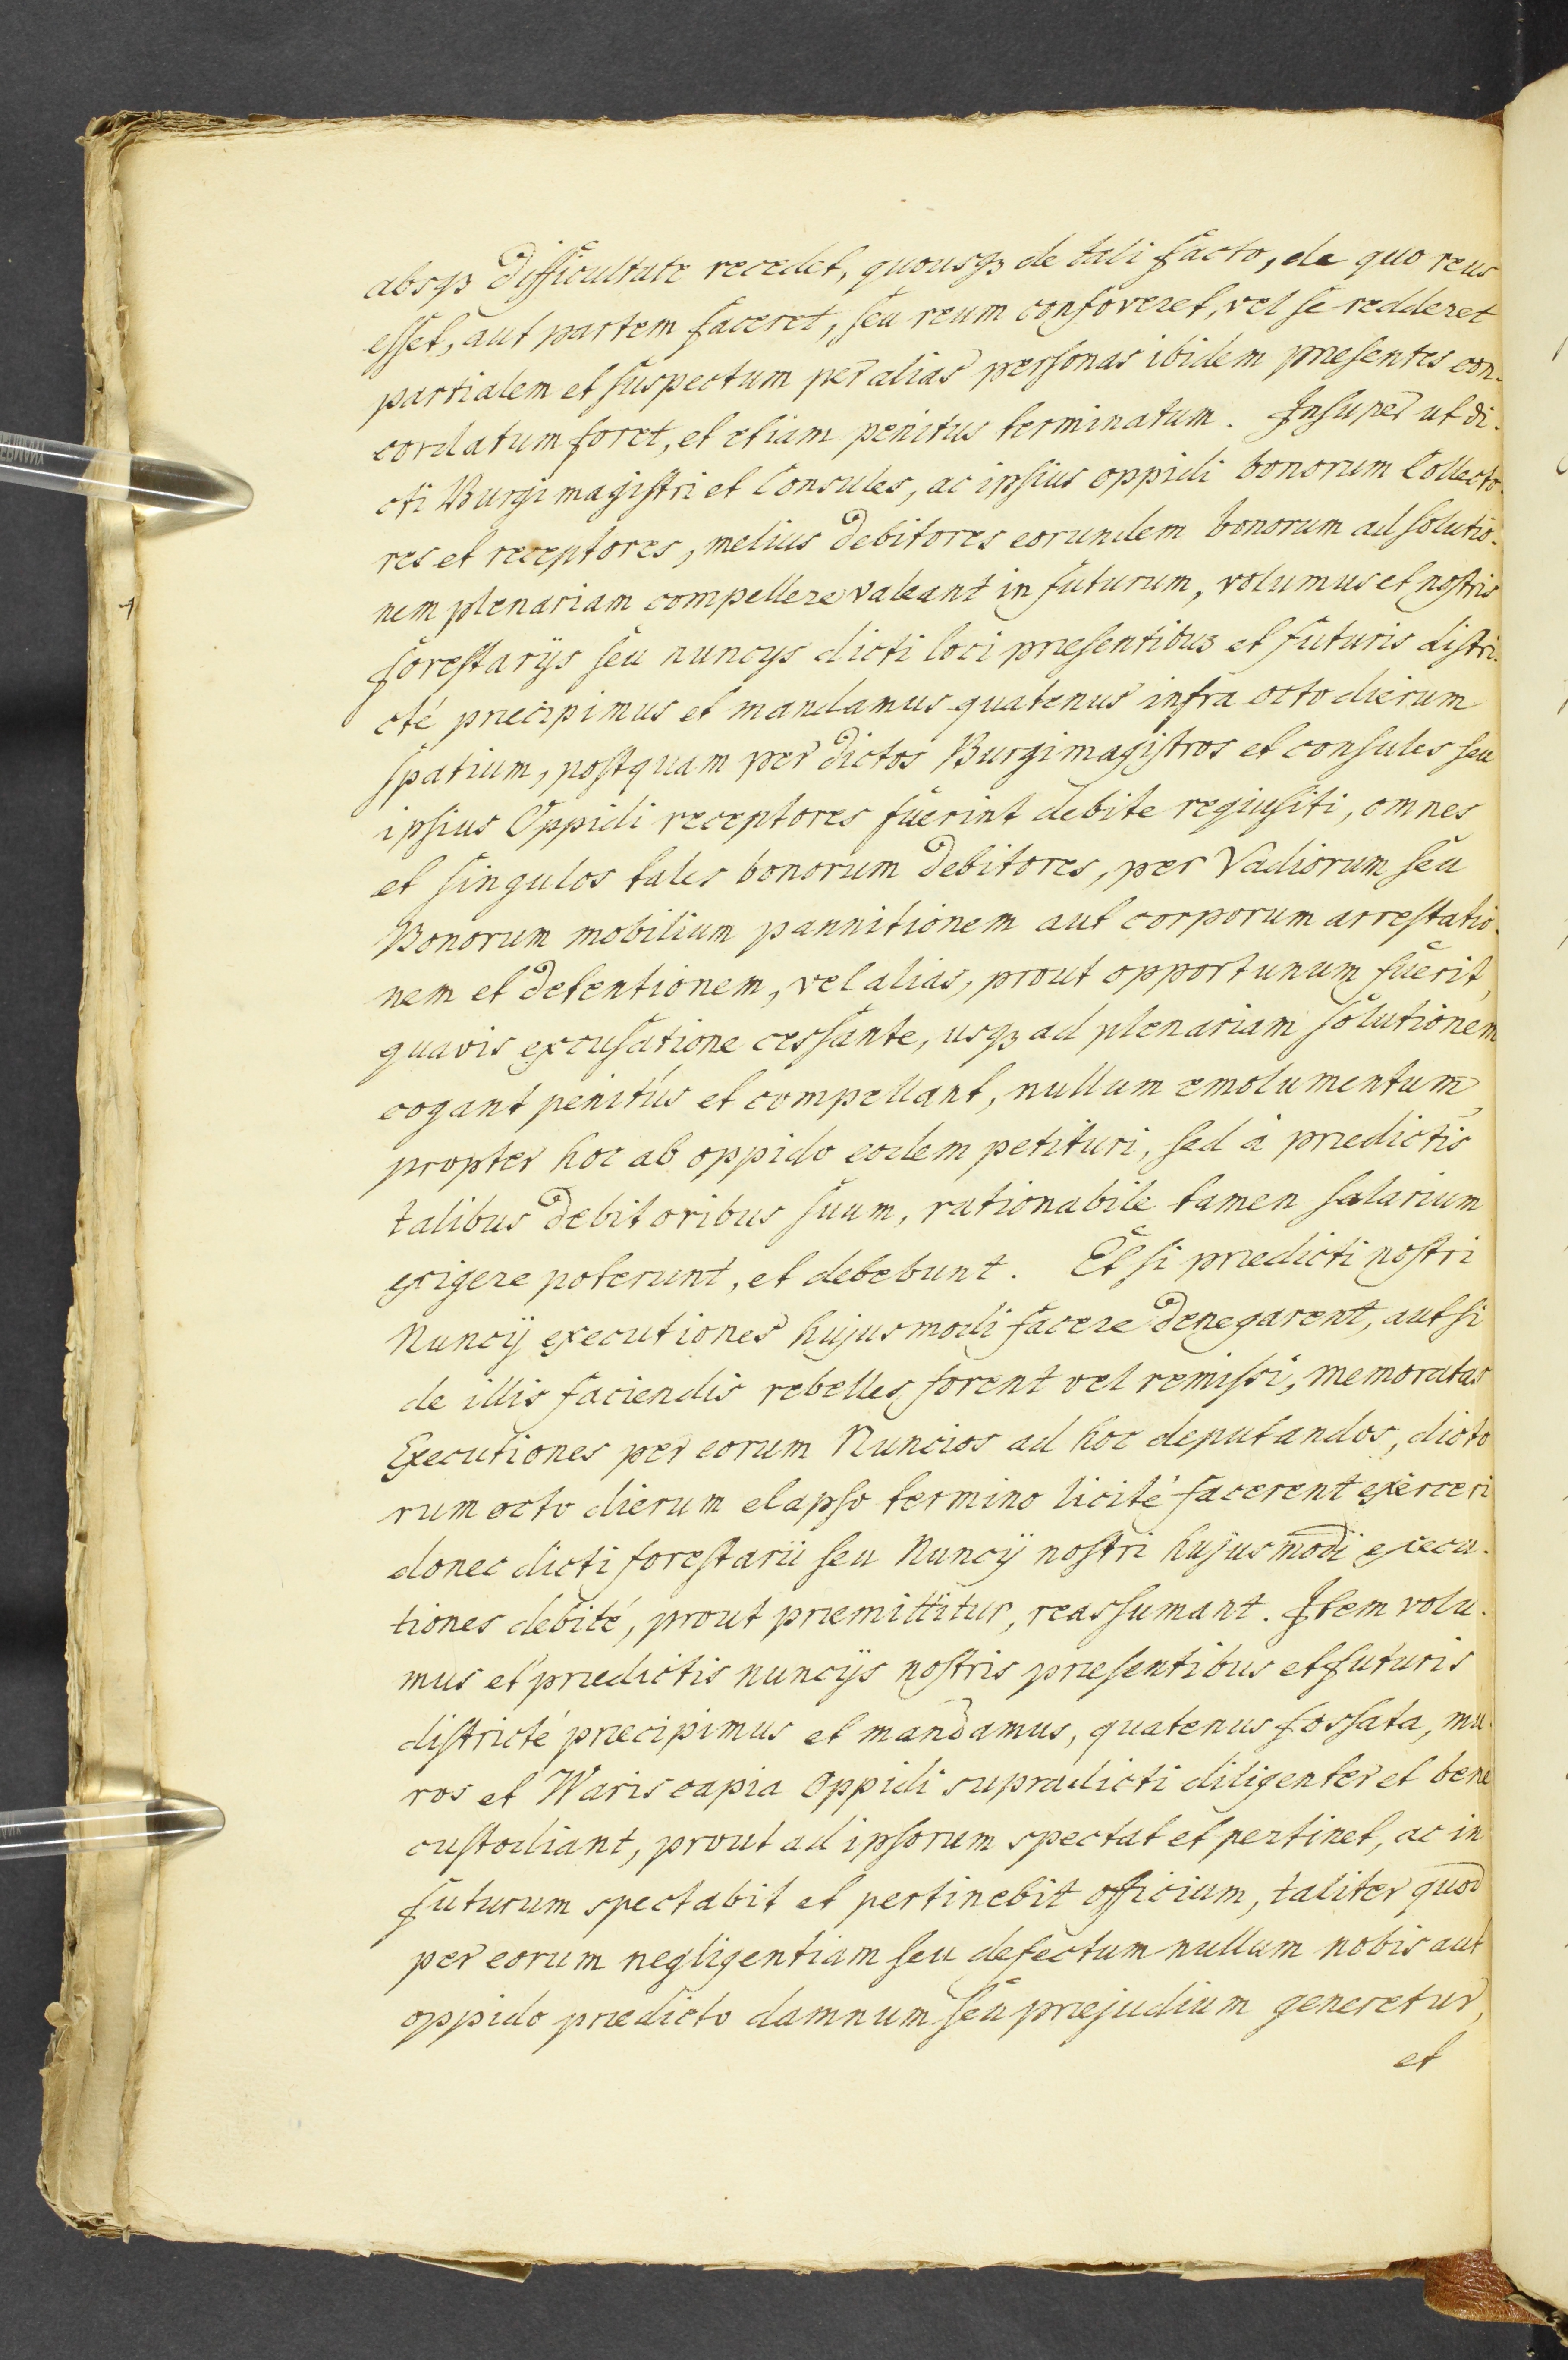 absqz difficultate recedet, quousqz de tali facto, de quo reus
esset, aut partem faceret, seu reum confoveret, vel se redderet
partialem et suspectum per alias personas ibidem præsentes con-
cordatum foret, et etiam penitus terminatum. Insuper ut di-
cti Burgimagistri et Consules, ac ipsius oppidi bonorum Collecto-
res et receptores, melius debitores eorundem bonorum ad solutio-
nem plenariam compellere valeant in futurum, volumus et nostris
forestarijs seu nuncijs dicti loci præsentibus et futuris distri-
cté præcipimus et mandamus quatenus infra octo dierum
spatium, postquam per dictos Burgimagistros et consules seu
ipsius Oppidi receptores fuerint debite requisiti, omnes
et singulos tales bonorum debitores, per Vadiorum seu
Bonorum mobilium pannitionem aut corporum arrestatio-
nem et detentionem, vel alias, prout opportunum fuerit,
quavis excusatione cessante, usqz ad plenariam solutionem
cogant penitús et compellant, nullum emolumentum
propter hoc ab oppido eodem petituri, sed à prædictis
talibus debitoribus suum, rationabile tamen salarium
exigere poterunt, et debebunt. Et si prædicti nostri
Nuncij executiones hujusmodi facere denegarent, aut si
de illis faciendis rebelles forent vel remissi, memoratas
Executiones per eorum Nuncios ad hoc deputandos, dicto
rum octo dierum elapso termino licité facerent exerceri
donec dicti forestarii seu Nuncij nostri hujusmodi execu-
tiones debité, prout præmittitur, reassumant. Item volu-
mus et prædictis nuncijs nostris præsentibus et futuris
districté præcipimus et mandamus, quatenus fossata, mu-
ros et Wariscapia Oppidi supradicti diligenter et bene
custodiant, prout ad ipsorum spectat et pertinet, ac in
futurum spectabit et pertinebit officium, taliter quod
per eorum negligentiam seu defectum nullum nobis aut
oppido prædicto damnum seu præjudium generetur,
et